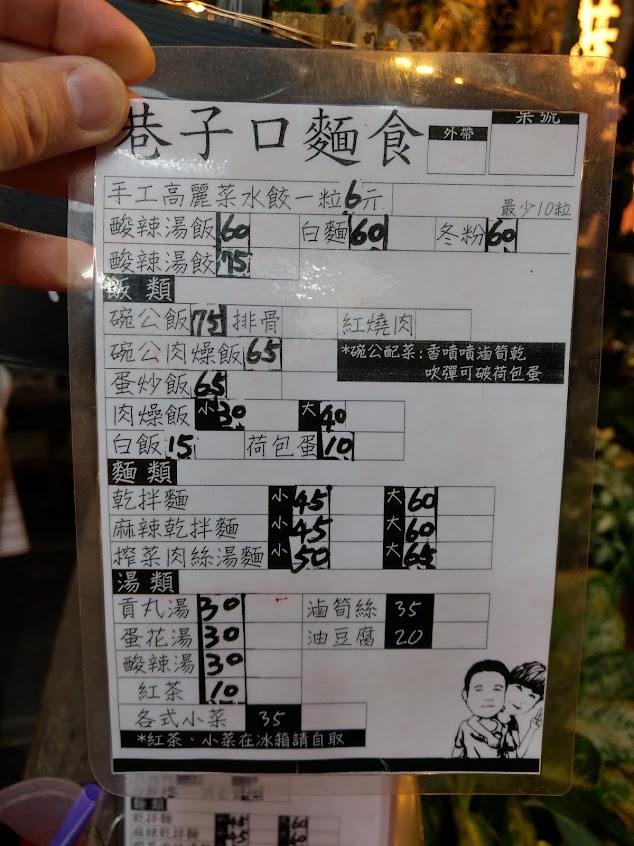 巷子口麵食 外帶 桌號
手工高麗菜水餃一粒6元 最少10粒
酸辣湯飯 60 白麵 60 冬粉 60
酸辣湯餃 75
飯類
碗公飯 75 排骨 紅燒肉
碗公肉燥飯 65
*碗公配菜:香噴噴滷筍乾
吹彈可破荷包蛋
蛋炒飯 65
肉燥飯 小 30 大 40
白飯 15 荷包蛋 10
麵類
乾拌麵 小 45 大 60
麻辣乾拌麵 小 45 大 60
搾菜肉絲湯麵 小 50 大 65
湯類
貢丸湯 30 滷筍絲 35
蛋花湯 30 油豆腐 20
酸辣湯 30
紅茶 10
各式小菜 35
*紅茶、小菜在冰箱請自取
麵類
乾拌麵 45 60
麻辣乾拌麵 45 60